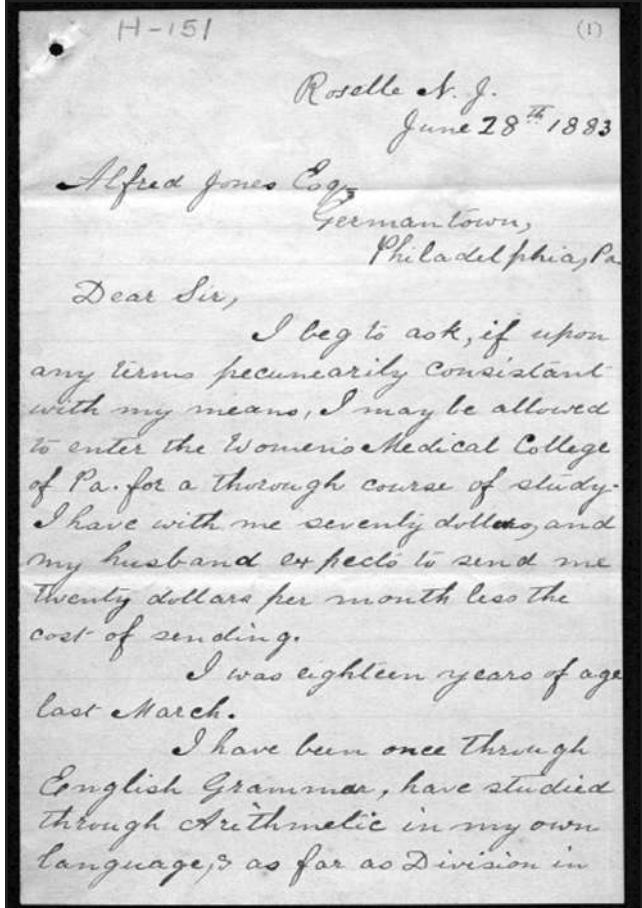 H-151
(1)
Roselle N. J.
June 28th 1883
Alfred Jones Esq,
Germantown,
Philadelphia, Pa
Dear Sir,
I beg to ask, if upon
any terms pecunearily consistant
with my means, I may be allowed
to enter the Women's Medical College
of Pa. for a thorough course of study.
I have with me seventy dollars, and
my husband expects to send me
twenty dollars per month less the
cost of sending.
I was eighteen years of age
last March.
I have been once through
English Grammar, have studied
through Arithmetic in my own
language, & as far as Division in